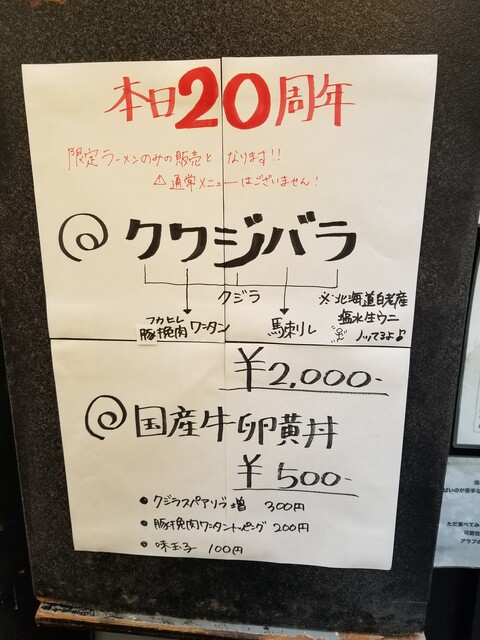 本日20周年
限定ラーメンのみの販売となります!!
⚠通常メニューはございません!
クワジバラ
クジラ
フカヒレ
豚挽肉ワンタン
馬刺し
※北海道白老産
塩水生ウニ
ノッてるよ♪
¥2,000-
国産牛卵黄丼
¥500-
●クジラスペアリブ増 300円
●豚挽肉ワンタントッピング 200円
●味玉子 100円
ただ食べてみ
可能性
アラフの